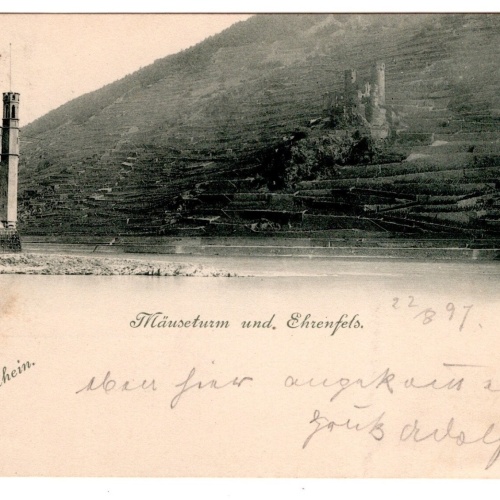 Mäuseturm und Ehrenfels.
22/8 97.
hein.
eben hier angekom
Gruß Adolf